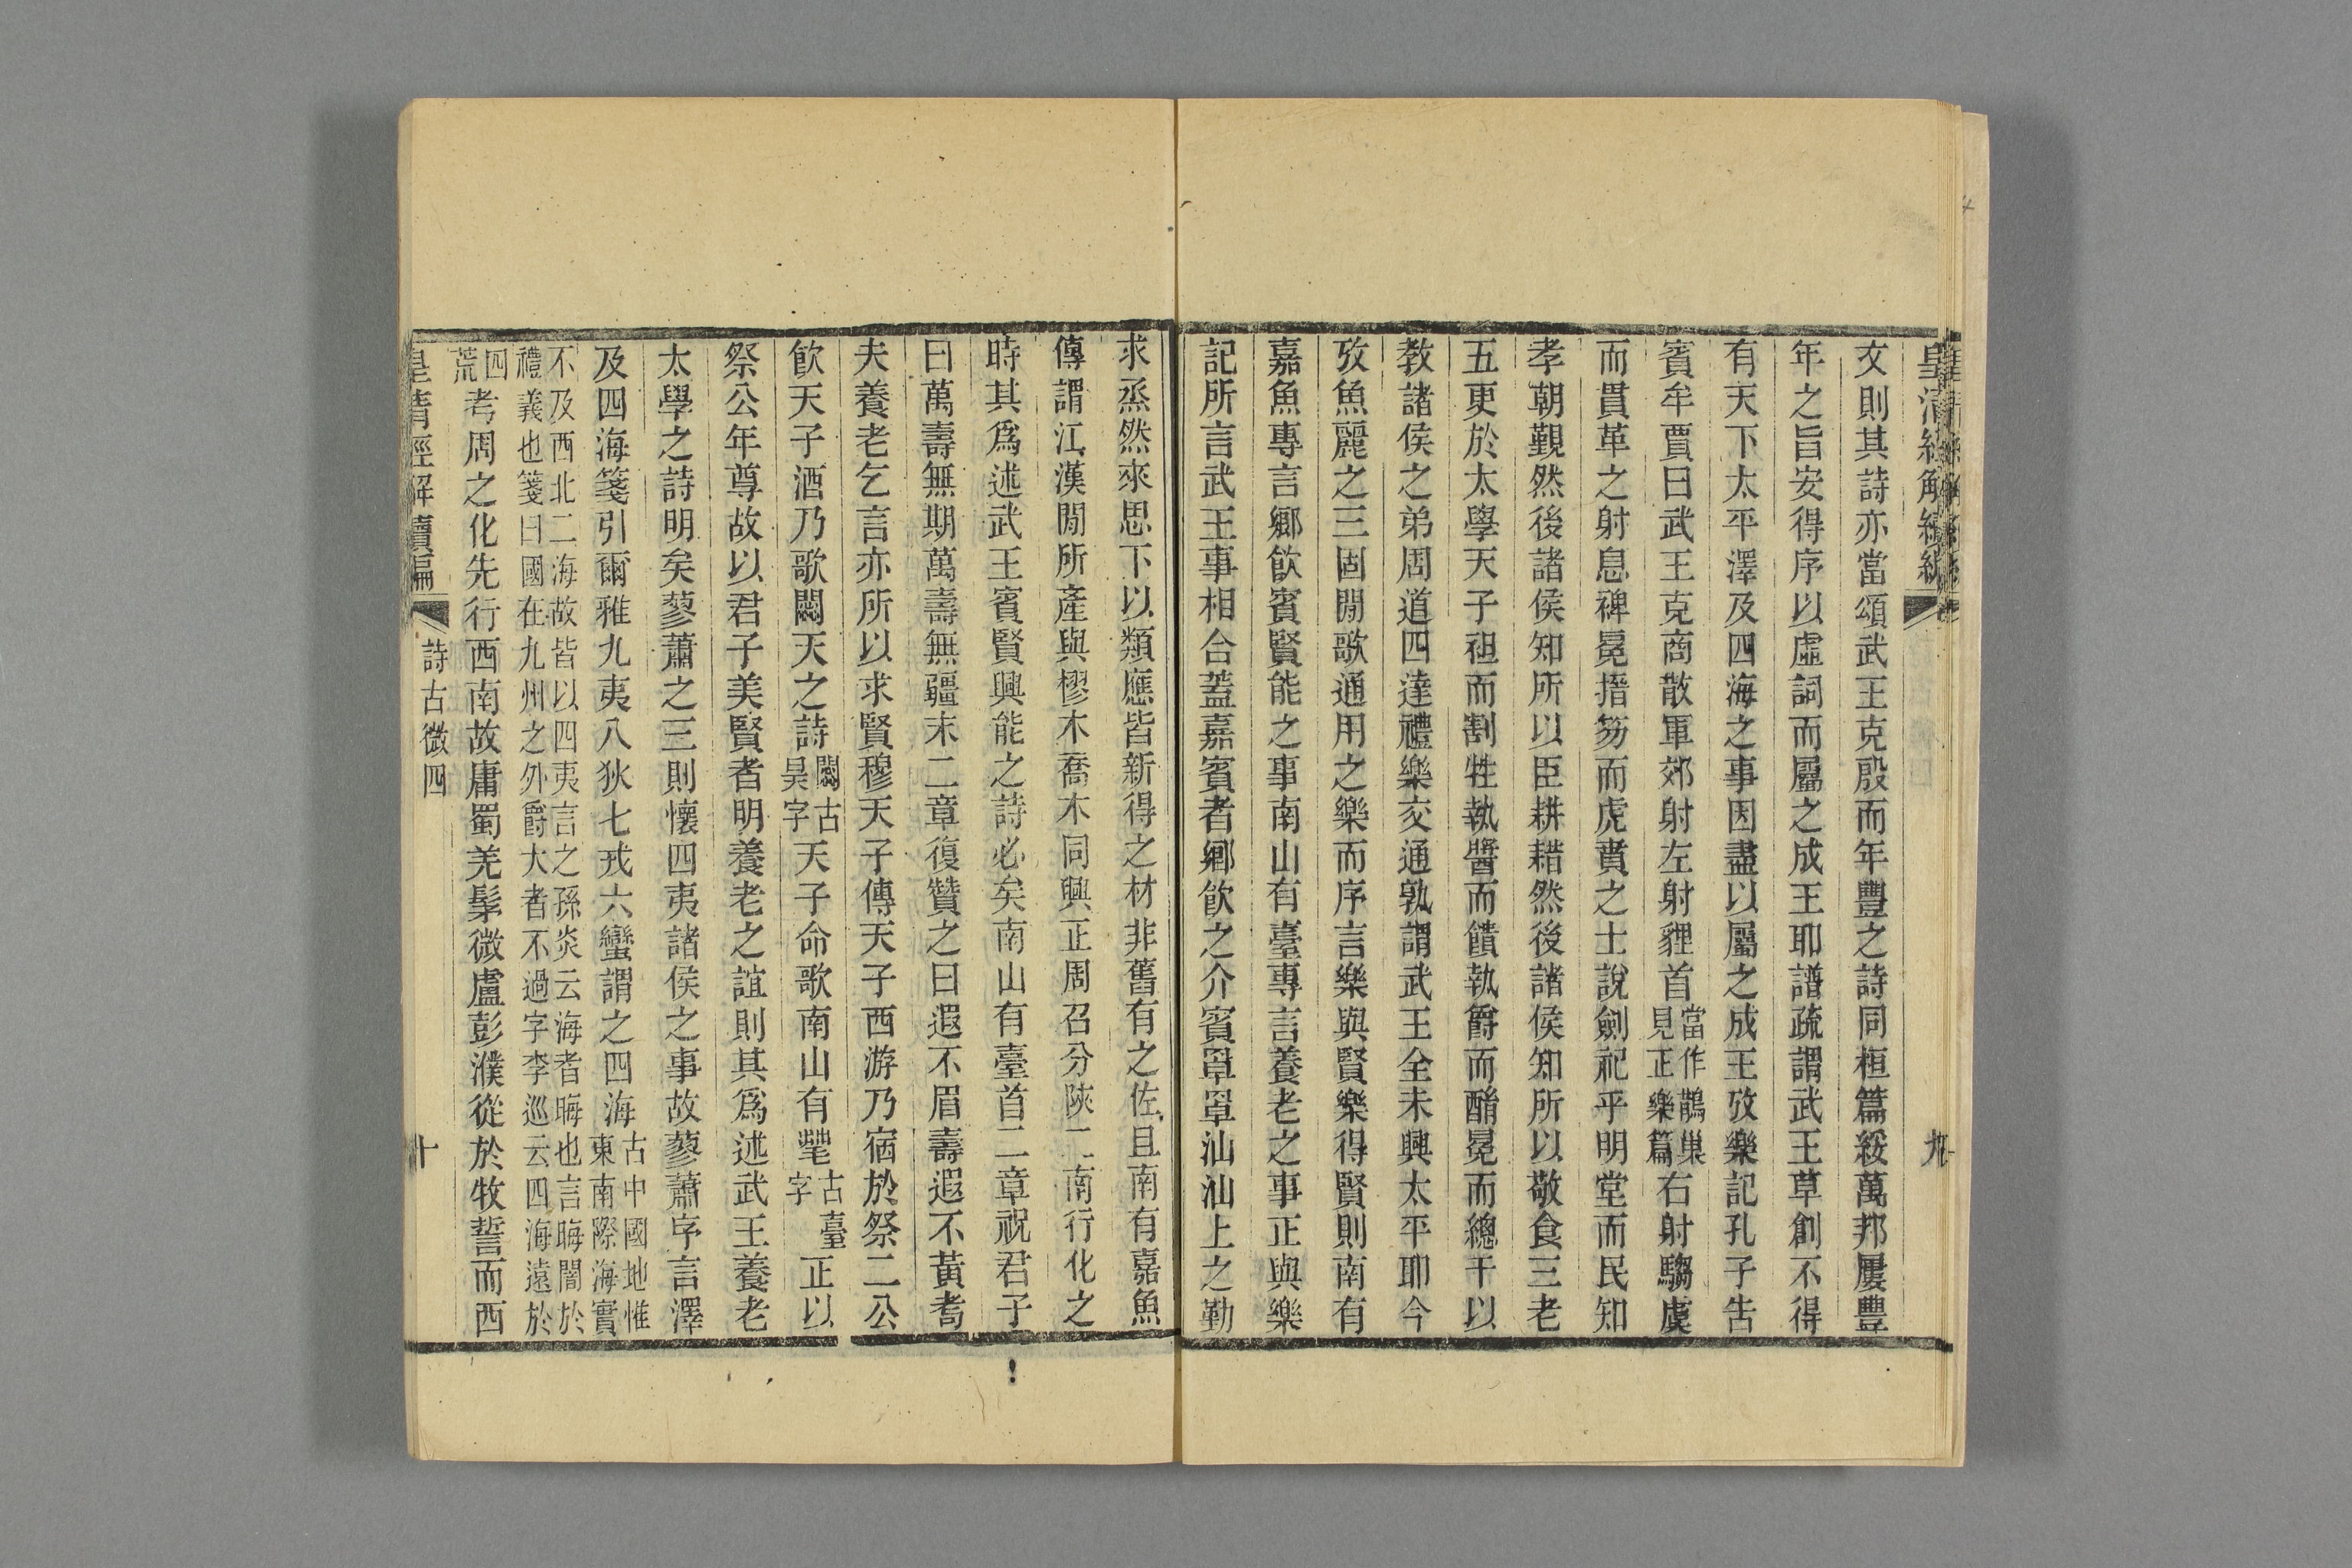 皇清經解續編
九
文則其詩亦當頌武王克殷而年豐之詩同桓篇綏萬邦屢豐
年之旨安得序以虛詞而屬之成王耶譜疏謂武王草創不得
有天下太平澤及四海之事因盡以屬之成王攷樂記孔子吿
賓牟賈曰武王克商散軍郊射左射貍首當作鵲巢見正樂篇右射騶虞
而貫革之射息裨冕搢笏而虎賁之士說劍祀乎明堂而民知
孝朝覲然後諸侯知所以臣耕耤然後諸侯知所以敬食三老
五更於太學天子袒而割牲執醬而饋執爵而酳冕而總干以
教諸侯之弟周道四達禮樂交通孰謂武王全未興太平耶今
攷魚麗之三固閒歌通用之樂而序言樂與賢樂得賢則南有
嘉魚專言鄉飮賓賢能之事南山有臺專言養老之事正與樂
記所言武王事相合蓋嘉賓者鄉飮之介賓罩罩汕汕上之勤
求烝然來思下以類應皆新得之材非舊有之佐且南有嘉魚
傳謂江漢閒所產與樛木喬木同興正周召分陝二南行化之
時其爲述武王賓賢興能之詩必矣南山有臺首二章祝君子
曰萬壽無期萬壽無疆末二章復贊之曰遐不眉壽遐不黃耇
夫養老乞言亦所以求賢穆天子傳天子西游乃宿於祭二公
飮天子酒乃歌闋天之詩闋古昊字天子命歌南山有䕬古臺字正以
祭公年尊故以君子美賢者明養老之誼則其爲述武王養老
太學之詩明矣蓼蕭之三則懷四夷諸侯之事故蓼蕭序言澤
及四海箋引爾雅九夷八狄七戎六蠻謂之四海古中國地惟東南際海實
不及西北二海故皆以四夷言之孫炎云海者晦也言晦闇於
禮義也箋曰國在九州之外爵大者不過字李巡云四海遠於
四荒考周之化先行西南故庸蜀羌髳微盧彭濮從於牧誓而西
皇清經解續編
詩古微四
十